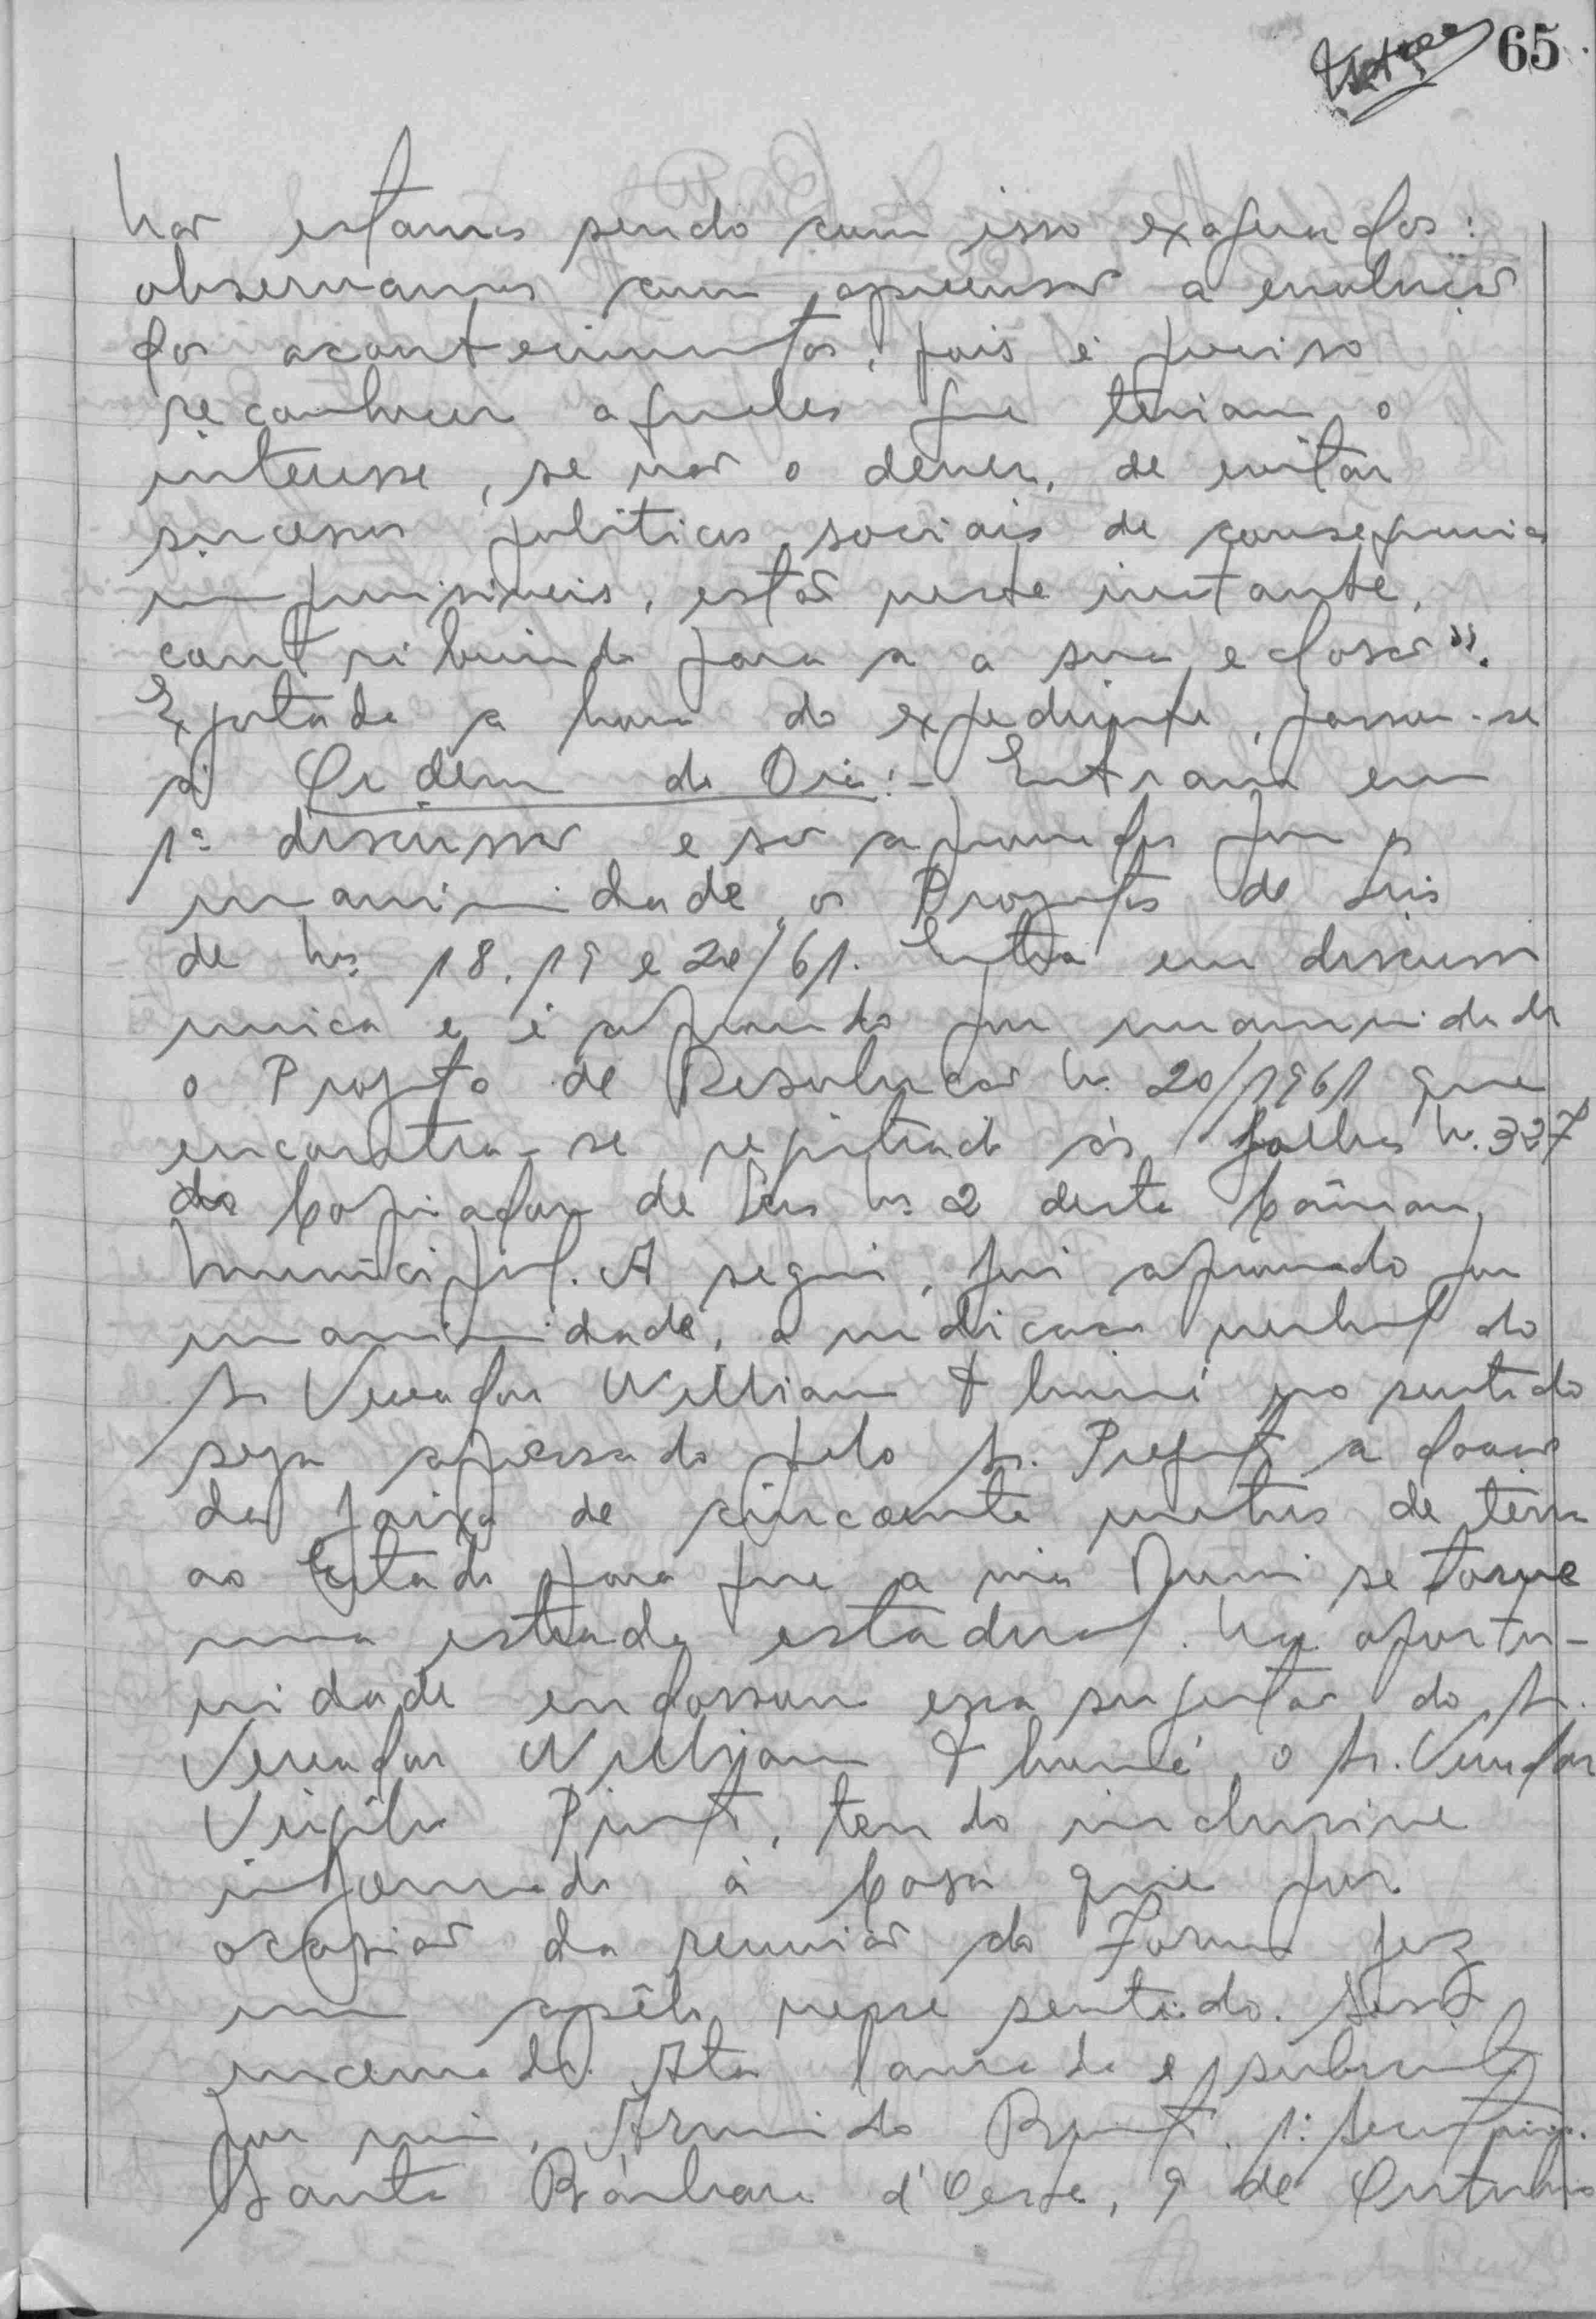 65
Não estamos sendo com isso exagerados:
observamos com apreensão a evolução
dos acontecimentos, pois é preciso
reconhecer aqueles que teriam o
interesse, se não o dever, de evitar
sucessos politicos sociais de consequencias
imprevisiveis, estão neste instante,
contribuindo para a a sua eclosão".
Exgotada a hora do expediente, passou-se
à Ordem do Dia:- Entram em
1ª discussão e são aprovados por
unanimidade os Projetos de Leis
de Ns. 18, 19 e 20/61. Entra em discussão
unica e é aprovado por unanimidade
o Projeto de Resolução N. 20/1961 que
encontra-se registrado às folhas N. 327
do Copiador de Leis N. 2 desta Câmara
Municipal. A seguir, foi aprovado por
unanimidade, a indicação verbal do
Sr Vereador William no sentido
seja apressado pelo Sr. Prefeito a doação
da faixa de cincoenta metros de terra
ao Estado para que a via se torne
uma estrada estadual. Na oportu-
nidade endossou essa sugestão do Sr.
Vereador William o Sr. Vereador
Virgilio, tendo inclusive
informado à Casa que por
ocasião da reunião do Forum fez
um apêlo nesse sentido. Sessão
encerrada. Ata lavrada e subscrita
por mim, Armindo 1º Secretário.
Santa Bárbara d'Oeste, 9 de Outubro